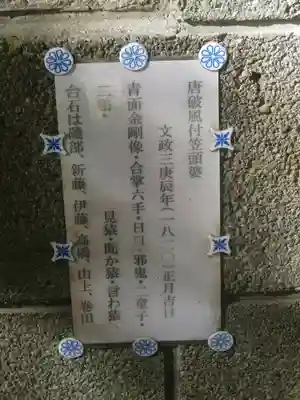 唐破風付笠頭婆
文政三庚辰年(一八二〇)正月吉日
青面金剛像・合掌六手・日月・邪鬼・二童子・
二鶏・
見猿・聞か猿・言わ猿、
台石は磯部、新藤、伊藤、高橋、山上、巻田